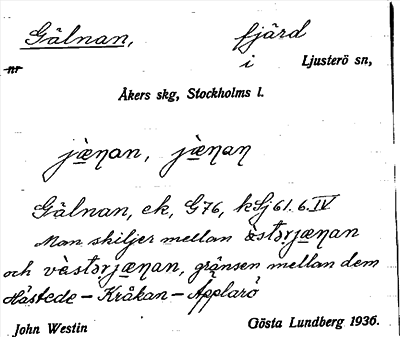 Gälnan, fjärd
nr i Ljusterö sn,
Åkers skg, Stockholms l.
jæ̀ṇan, jæ̀ṇaɲ
Gälnan, ek, G76, kSj 61. 6. IV
Man skiljer mellan ästərjæṇan
och västərjæṇan, gränsen mellan dem
Håstede – Kråkan – Äpplarö
John Westin Gösta Lundberg 1936.